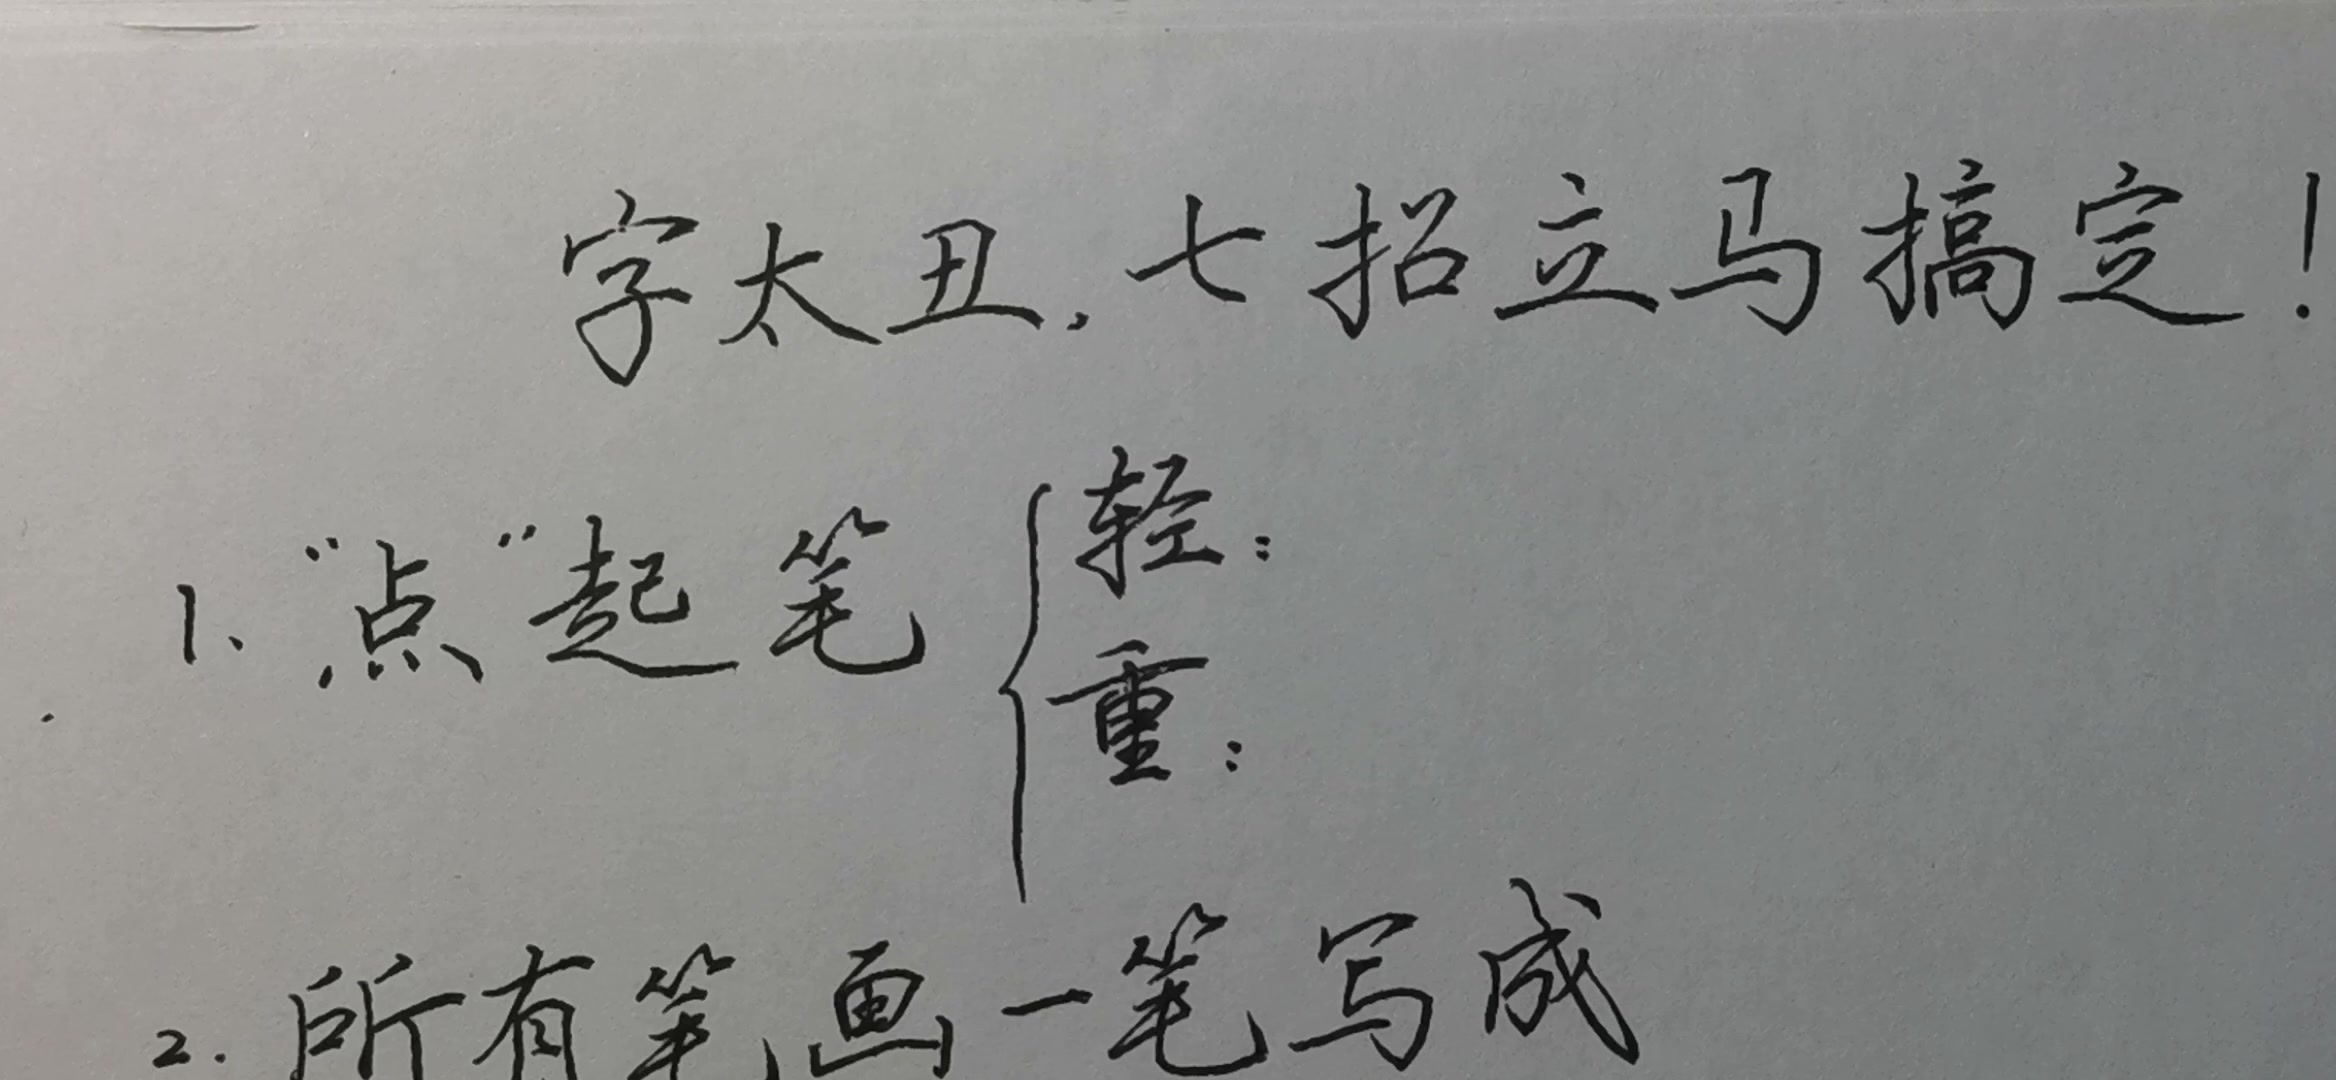 字太丑，七招立马搞定！
1、“点”起笔｛轻：
重：
2. 所有笔画一笔写成